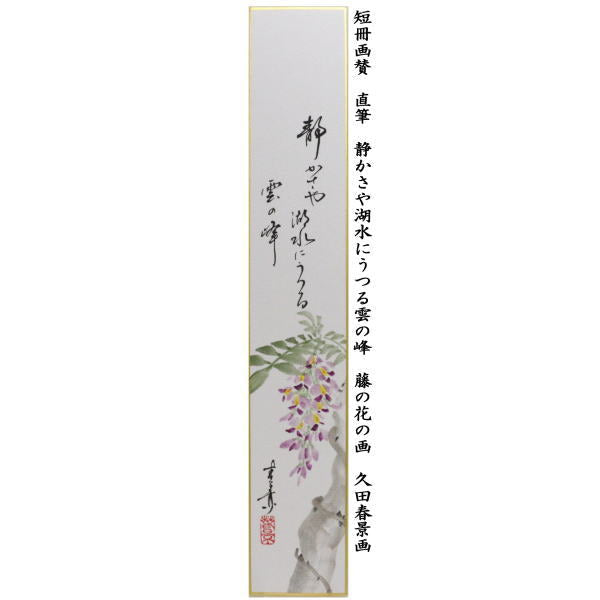 短冊画賛　直筆　静かさや湖水にうつる雲の峰　藤の花の画　久田春景画
静かさや湖水にうつる
雲の峰